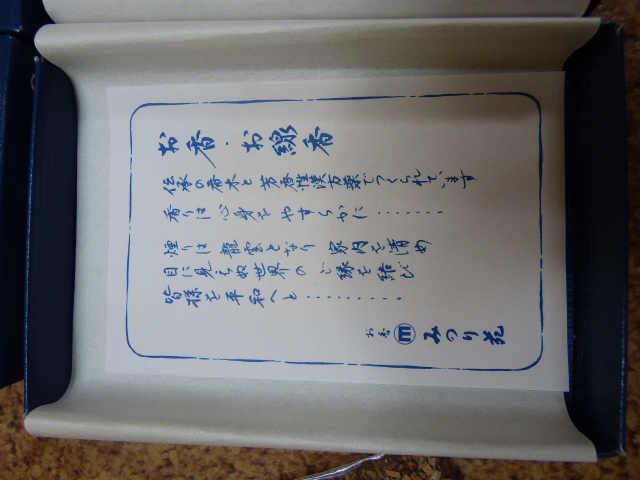 お香・お線香
伝承の香木と芳香性漢方薬でつくられています
香りは心身をやすらかに・・・・・・・
煙りは龍雲となり家内を清め
目に見えぬ世界のご縁を結び
皆様を平和へと・・・・・・・・
お香 m みのり苑